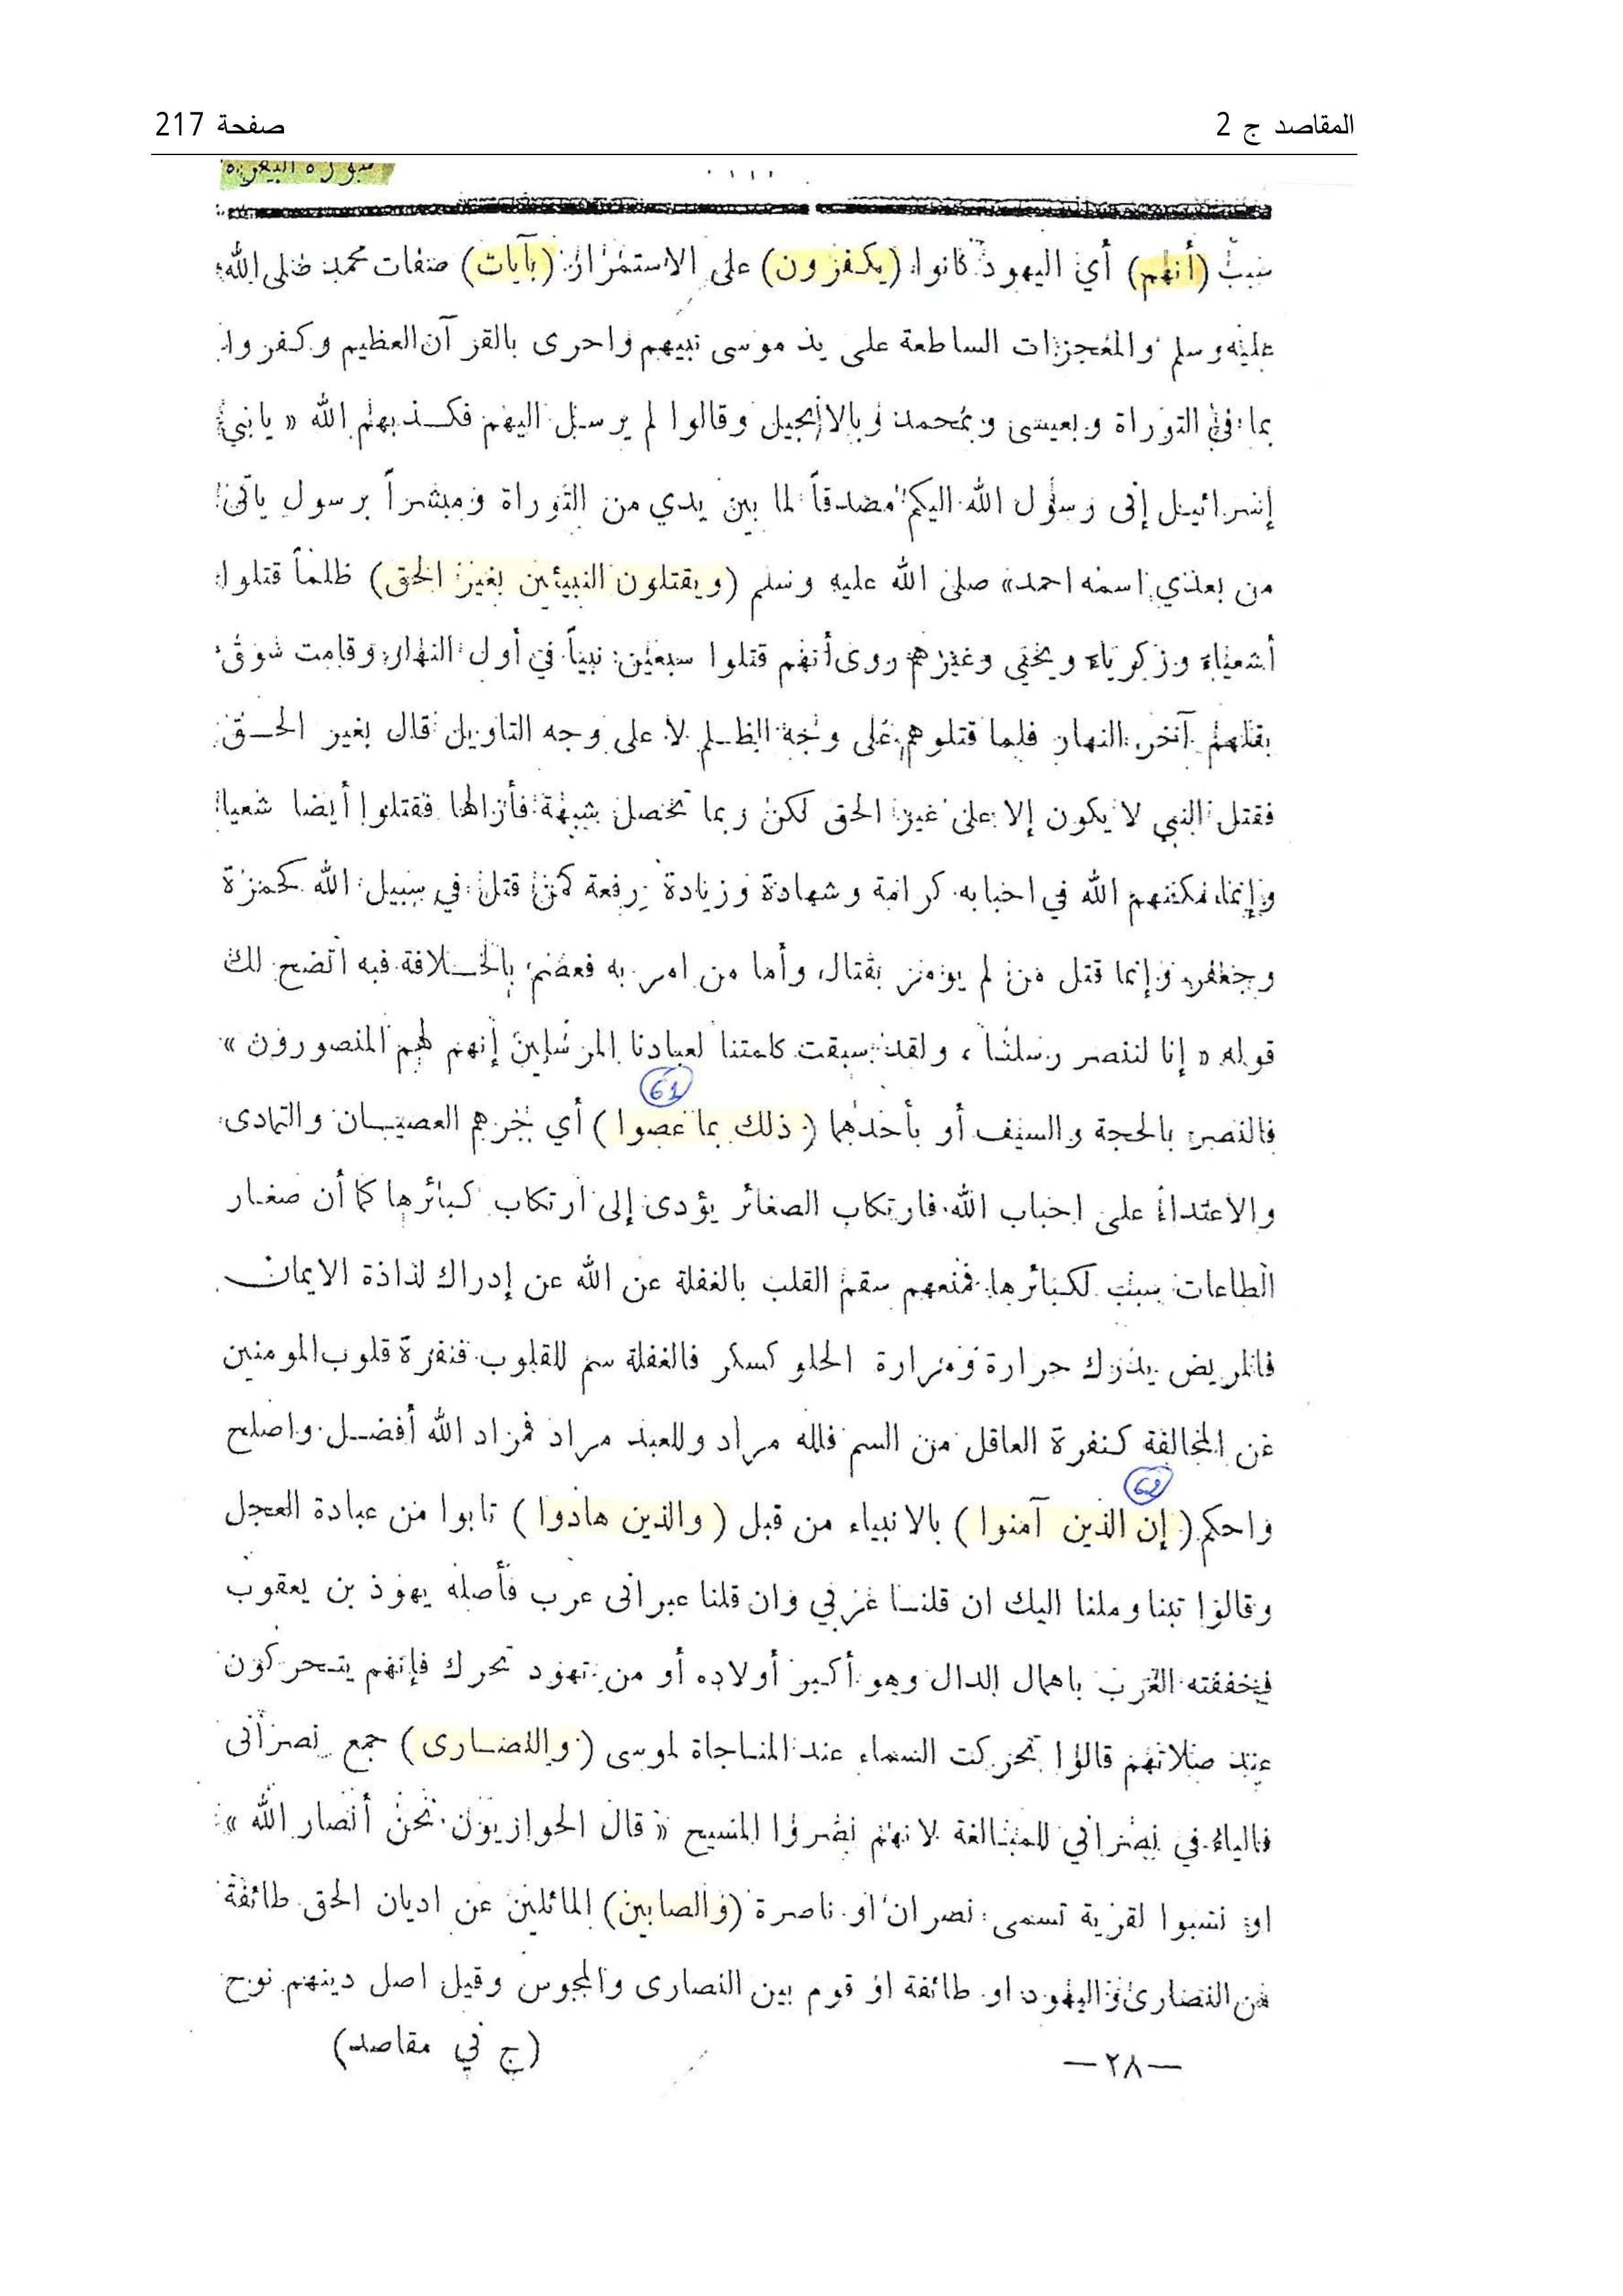 المقاصد ج 2
صفحة 217
سورة البقرة
سبب (أنهم) أي اليهود كانوا (يكفرون) على الاستمرار (بآيات) صفات محمد صلى الله
عليه وسلم والمعجزات الساطعة على يد موسى نبيهم واحرى بالقرآن العظيم وكفروا
بما في التوراة وبعيسى وبمحمد وبالانجيل وقالوا لم يرسل اليهم فكذبهم الله « يا بني
إسرائيل إنى رسول الله اليكم مصدقاً لما بين يدي من التوراة ومبشراً برسول ياتى
من بعدي اسمه احمد» صلى الله عليه وسلم (ويقتلون النبيئين بغير الحق) ظلماً قتلوا
أشعياء وزكرياء ويحي وغيرهم روى أنهم قتلوا سبعين نبياً في أول النهار وقامت سوق
بقلهم آخر النهار فلما قتلوهم على وجه الظلم لا على وجه التاويل قال بغير الحق
فقتل النبي لا يكون إلا على غير الحق لكن ربما تحصل شبهة فأزالها فقتلوا أيضا شعيا
وإنما مكنهم الله في احبابه كرامة وشهادة وزيادة رفعة كمن قتل في سبيل الله كحمزة
وجعفر وإنما قتل من لم يومر بقتال وأما من امر به فعصم بالخلافة فبه اتضح لك
قوله « إنا لننصر رسلنا ، ولقد سبقت كلمتنا لعبادنا المرسلين إنهم لهم المنصورون »
61
فالنصر بالحجة والسيف أو بأحدهما (ذلك بما عصوا) أي بجرهم العصيان والتمادى
والاعتداء على احباب الله فارتكاب الصغائر يؤدى إلى ارتكاب كبائرها كما أن صغار
الطاعات سبب لكبائرها فمنعهم سقم القلب بالغفلة عن الله عن إدراك لذاذة الايمان
فالمريض يدرك حرارة ومرارة الحلو كسكر فالغفلة سم للقلوب فنفرة قلوب المومنين
عن المخالفة كنفرة العاقل من السم فلله مراد وللعبد مراد فمراد الله أفضل واصلح
62
واحكم (إن الذين آمنوا) بالانبياء من قبل (والذين هادوا) تابوا من عبادة العجل
وقالوا تبنا وملنا اليك ان قلنا عربي وان قلنا عبرانى عرب فأصله يهوذ بن يعقوب
فخففته العرب باهمال الدال وهو أكبر أولاده أو من تهود تحرك فإنهم يتحركون
عند صلاتهم قالوا تحركت السماء عند المناجاة لموسى (والنصارى) جمع نصرانى
فالياء في نصراني للمبالغة لانهم نصروا المسيح « قال الحواريون نحن أنصار الله »
او نسبوا لقرية تسمى نصران او ناصرة (والصابين) المائلين عن اديان الحق طائفة
من النصارى واليهود او طائفة او قوم بين النصارى والمجوس وقيل اصل دينهم نوح
—٢٨—
(ج في مقاصد)